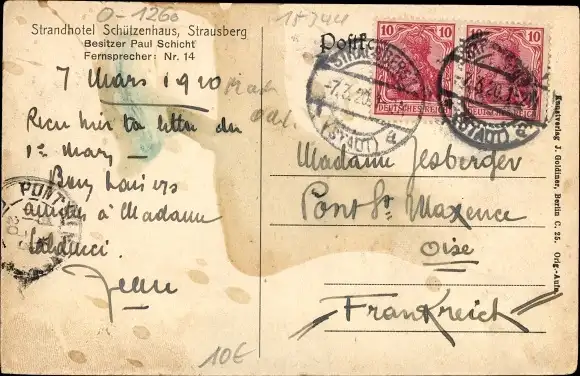 O-1260
15344
Strandhotel Schützenhaus, Strausberg
Besitzer Paul Schicht
Fernsprecher: Nr. 14
7 Mars 1920
Recu hier ta lettre du
1er Mars
Bons baisers
amities à Madame
Jean
10€
Postk
10 10
10 10
DEUTSCHES REICH
DEUTSCHES REICH
STRAUSBERG
-7.3.20.
(STADT)
a
-7.3.20.
(STADT)
a
PONT
Madame Jesberger
Pont Ste Maxence
Oise
Frankreich
Kunstverlag J. Goldiner, Berlin C. 25. Orig.-Aufn.